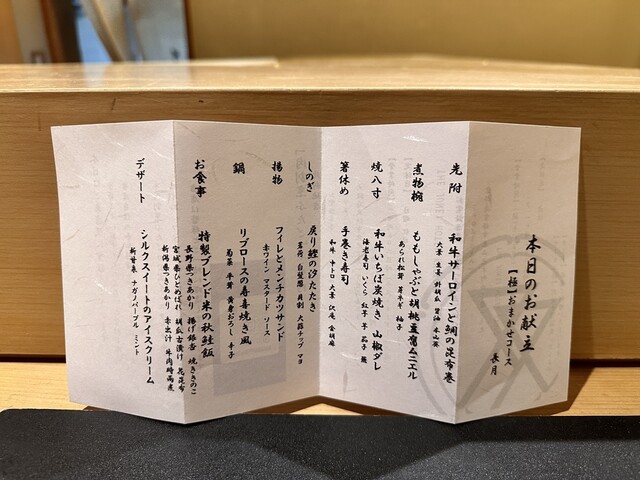 本日のお献立
【極】おまかせコース
長月
先附
和牛サーロインと鯛の昆布巻
大葉 生姜 野胡瓜 醤油 本山葵
煮物椀
ももしゃぶと胡桃豆腐ムニエル
あられ松茸 芽ネギ 柚子
焼八寸
和牛いちぼ炭焼き 山椒ダレ
海老寿司 いくら 紅子 芋 茄子
箸休め
手巻き寿司
和牛 中トロ 大葉 沢庵 金胡麻
しのぎ
戻り鰹の汐たたき
茗荷 白髪葱 貝割 大蒜チップ マヨ
揚物
フィレとメンチカツサンド
赤ワイン マスタード ソース
鍋
リブロースの寿喜焼き風
菊菜 平茸 黄身おろし 辛子
お食事
特製ブレンド米の秋鮭飯
長野県つきあかり 揚げ銀杏 焼ききのこ
宮城県ひとめぼれ 胡瓜古漬け 花昆布
新潟県つきあかり 赤出汁 牛肉時雨煮
デザート
シルクスイートのアイスクリーム
新甘泉 ナガノパープル ミント